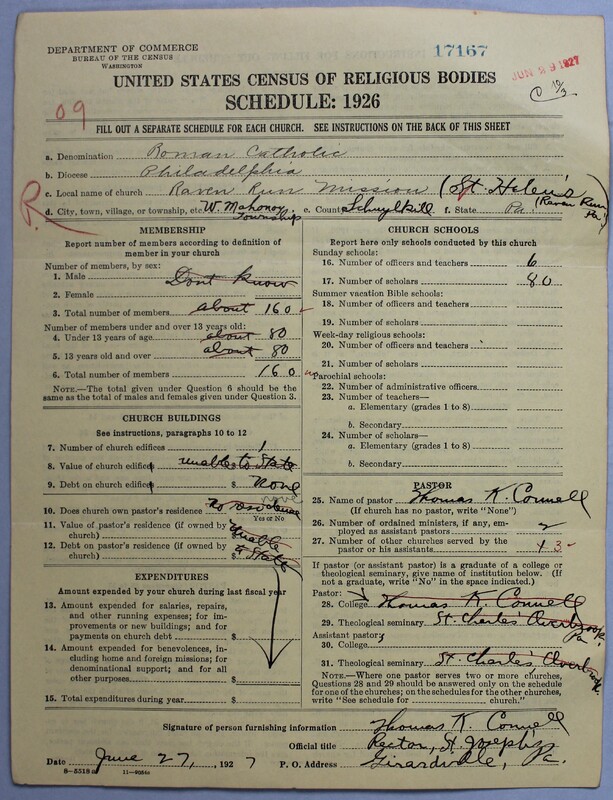 DEPARTMENT OF COMMERCE
BUREAU OF THE CENSUS
WASHINGTON
17167
JUN 29 1927
UNITED STATES CENSUS OF RELIGIOUS BODIES
SCHEDULE: 1926
09
FILL OUT A SEPARATE SCHEDULE FOR EACH CHURCH. SEE INSTRUCTIONS ON THE BACK OF THIS SHEET
a. Denomination Roman Catholic
b. Diocese Philadelphia
c. Local name of church Raven Run Mission (St Helen's
(Raven Run, Pa.)
d. City, town, village, or township, etc. W. Mahonoy Township e. County Schuylkill f. State Pa
MEMBERSHIP
Report number of members according to definition of member in your church
Number of members, by sex:
1. Male Dont know
2. Female
3. Total number of members about 160
Number of members under and over 13 years old:
4. Under 13 years of age about 80
5. 13 years old and over about 80
6. Total number of members 160
NOTE.—The total given under Question 6 should be the same as the total of males and females given under Question 3.
CHURCH BUILDINGS
See instructions, paragraphs 10 to 12
7. Number of church edifices 1
8. Value of church edifices unable to State
9. Debt on church edifices $ none
10. Does church own pastor's residence no residence
Yes or No
11. Value of pastor's residence (if owned by church) $ Unable
12. Debt on pastor's residence (if owned by church) $ to State
EXPENDITURES
Amount expended by your church during last fiscal year
13. Amount expended for salaries, repairs, and other running expenses; for improvements or new buildings; and for payments on church debt $
14. Amount expended for benevolences, including home and foreign missions; for denominational support; and for all other purposes $
15. Total expenditures during year $
CHURCH SCHOOLS
Report here only schools conducted by this church
Sunday schools:
16. Number of officers and teachers 6
17. Number of scholars 80
Summer vacation Bible schools:
18. Number of officers and teachers
19. Number of scholars
Week-day religious schools:
20. Number of officers and teachers
21. Number of scholars
no Parochial schools:
22. Number of administrative officers
23. Number of teachers—
a. Elementary (grades 1 to 8)
b. Secondary
24. Number of scholars—
a. Elementary (grades 1 to 8)
b. Secondary
PASTOR
25. Name of pastor Thomas K. Connell
(If church has no pastor, write "None")
26. Number of ordained ministers, if any, employed as assistant pastors 2
27. Number of other churches served by the pastor or his assistants 1 3
If pastor (or assistant pastor) is a graduate of a college or theological seminary, give name of institution below. (If not a graduate, write "No" in the space indicated.)
Pastor:
28. College Thomas K. Connell
29. Theological seminary St. Charles Overbrook, Pa
Assistant pastor:
30. College
31. Theological seminary St. Charles Overbrook.
NOTE.—Where one pastor serves two or more churches, Questions 28 and 29 should be answered only on the schedule for one of the churches; on the schedules for the other churches, write "See schedule for church."
Signature of person furnishing information Thomas K. Connell
Official title Rector, St. Joseph's
Date June 27, 1927 P. O. Address Girardville, Pa.
8—5518 a 11—9054a